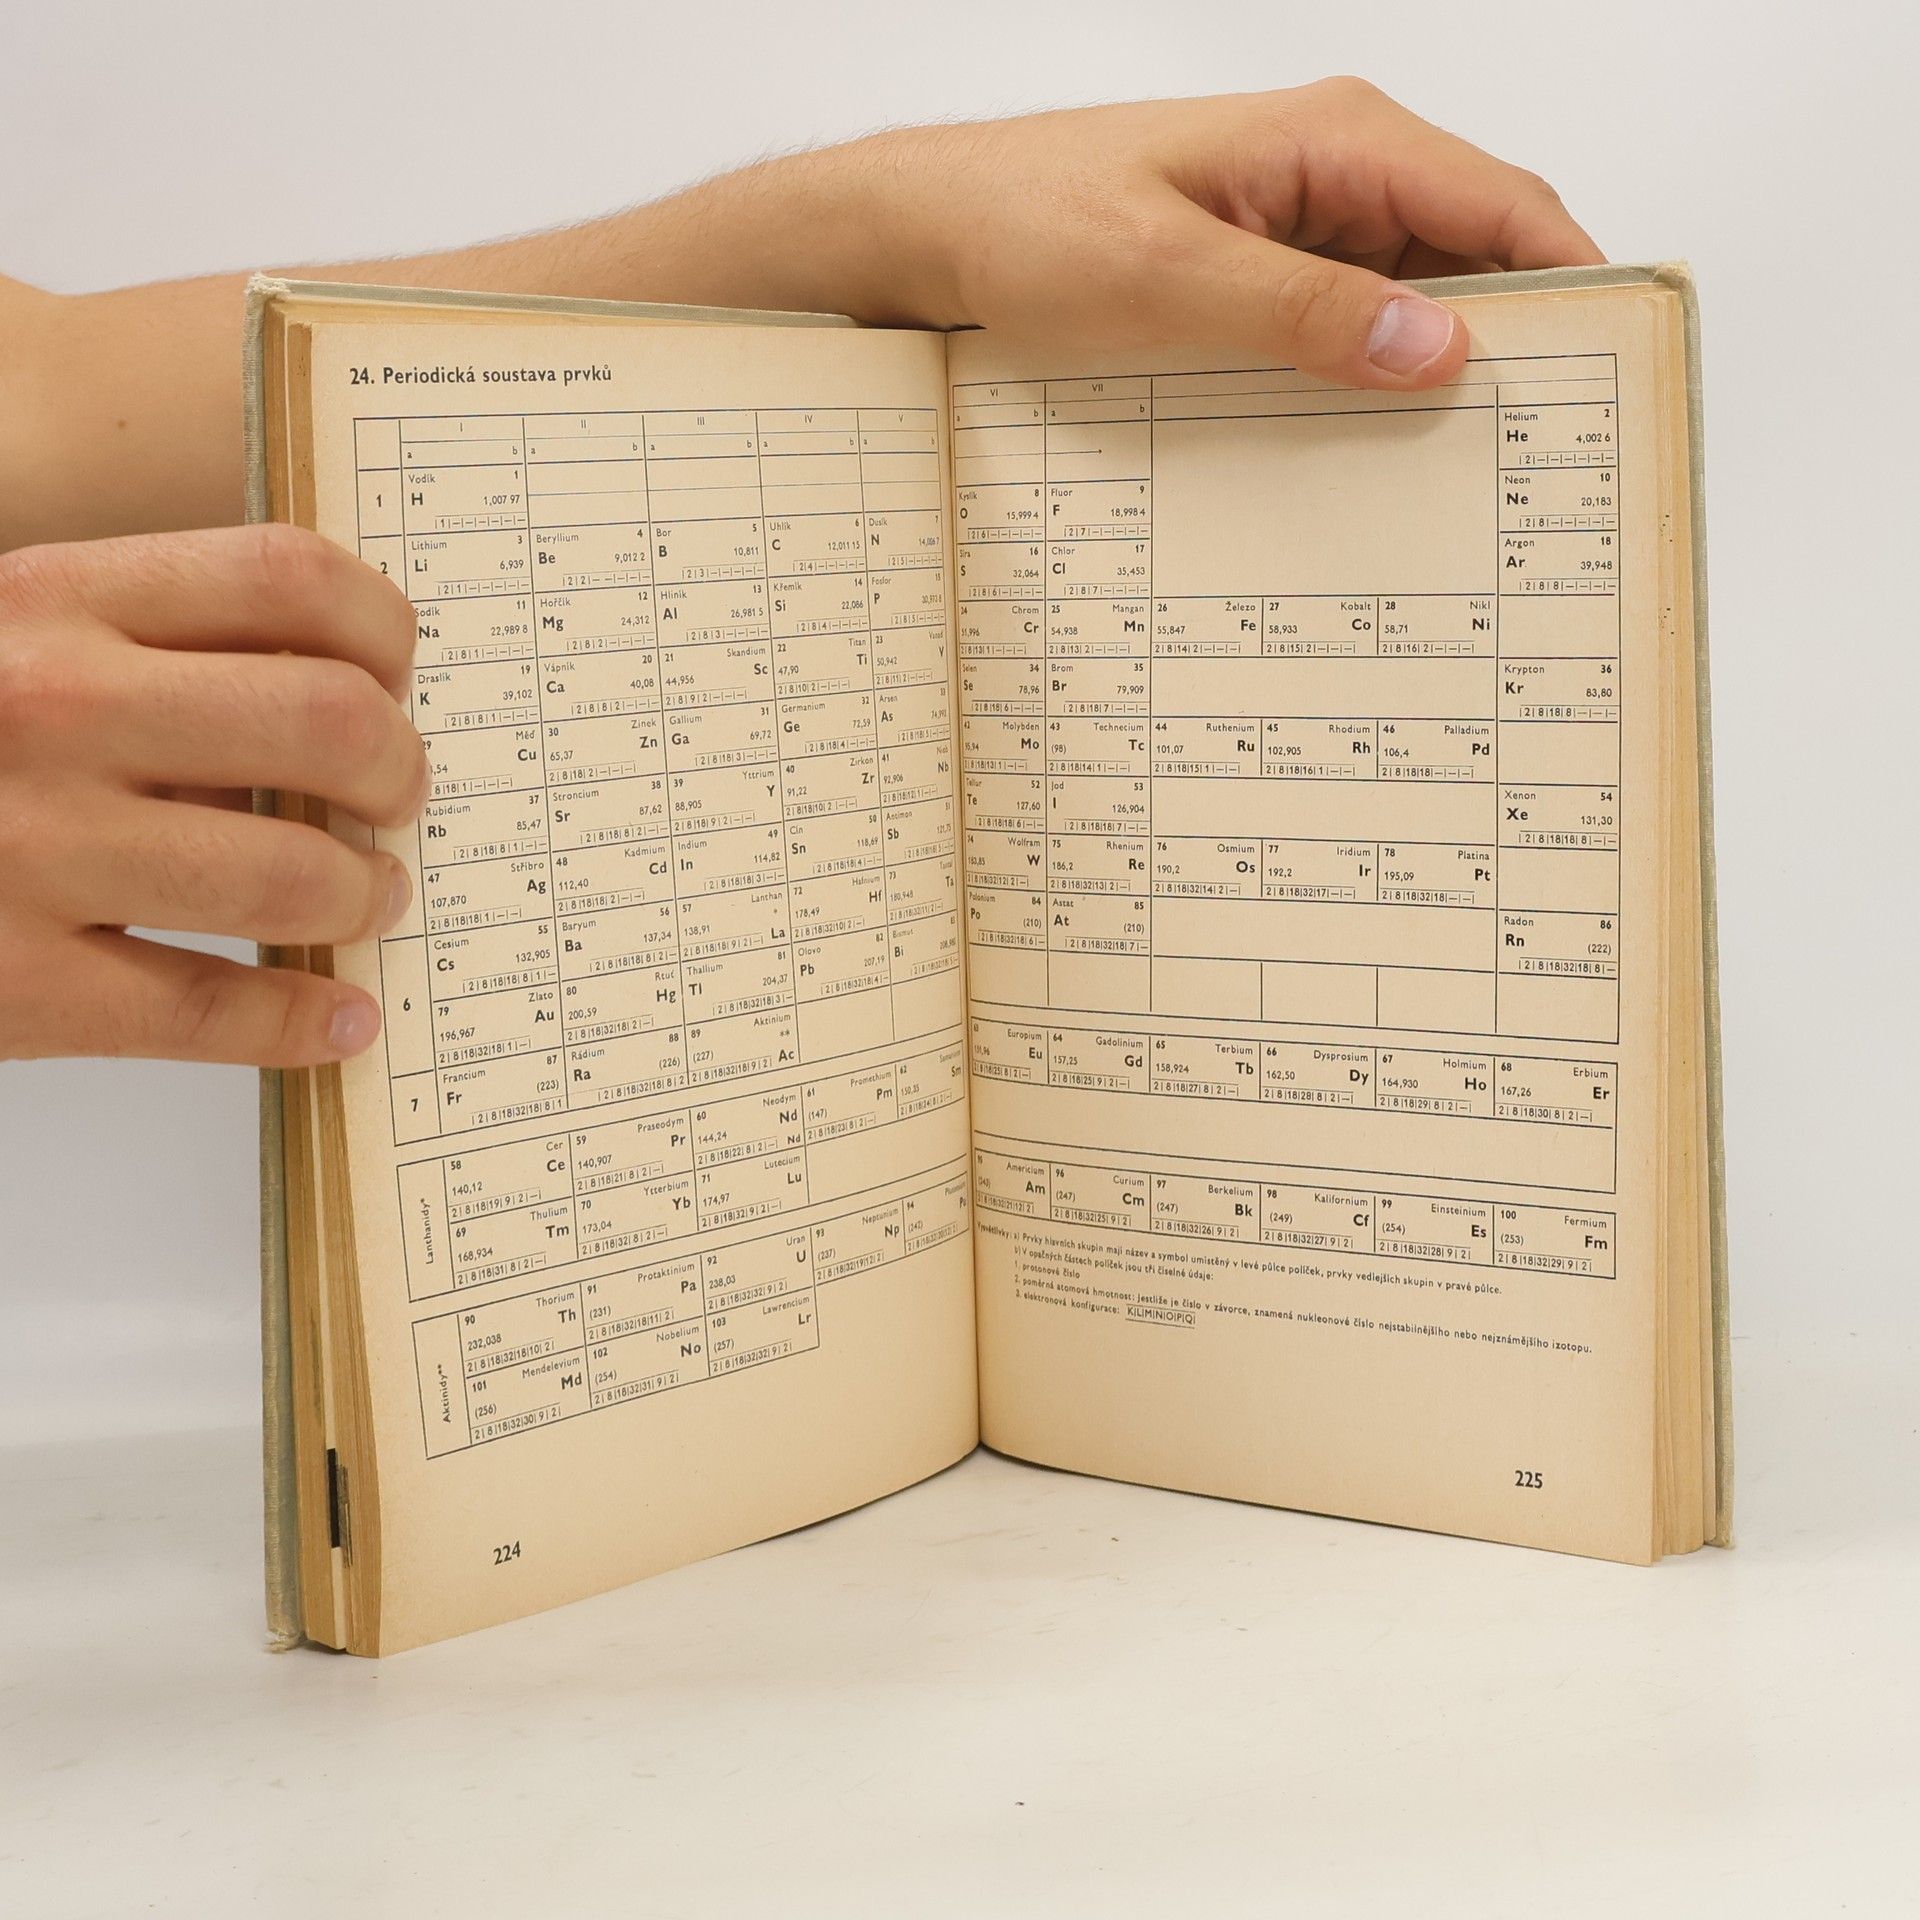 24. Periodická soustava prvků
I II III IV V
a b a b a b a b a b
1 Vodík 1
H 1,007 97
|1|—|—|—|—|—|—
2 Lithium 3 Beryllium 4 Bor 5 Uhlík 6 Dusík 7
Li 6,939 Be 9,012 2 B 10,811 C 12,011 15 N 14,006 7
|2|1|—|—|—|—|— |2|2|—|—|—|—|— |2|3|—|—|—|—|— |2|4|—|—|—|—|— |2|5|—|—|—|—|—
Sodík 11 Hořčík 12 Hliník 13 Křemík 14 Fosfor 15
Na 22,989 8 Mg 24,312 Al 26,981 5 Si 22,086 P 30,973 8
|2|8|1|—|—|—|— |2|8|2|—|—|—|— |2|8|3|—|—|—|— |2|8|4|—|—|—|— |2|8|5|—|—|—|—
Draslík 19 Vápník 20 21 Skandium 22 Titan 23 Vanad
K 39,102 Ca 40,08 44,956 Sc 47,90 Ti 50,942 V
|2|8|8|1|—|—|— |2|8|8|2|—|—|— 2|8|9|2|—|—|— 2|8|10|2|—|—|— 2|8|11|2|—|—|—
29 Měď 30 Zinek Gallium 31 Germanium 32 Arsen 33
,54 Cu 65,37 Zn Ga 69,72 Ge 72,59 As
8|18|1|—|—|— 2|8|18|2|—|—|— |2|8|18|3|—|—|— |2|8|18|4|—|—|— |2|8|18|5|—|—|—
Rubidium 37 Stroncium 38 39 Yttrium 40 Zirkon 41 Niob
Rb 85,47 Sr 87,62 88,905 Y 91,22 Zr 92,906 Nb
|2|8|18|8|1|—|— |2|8|18|8|2|—|— 2|8|18|9|2|—|— 2|8|18|10|2|—|— 2|8|18|12|1|—|—
47 Stříbro 48 Kadmium Indium 49 Cín 50 Antimon 51
107,870 Ag 112,40 Cd In 114,82 Sn 118,69 Sb 121,75
2|8|18|18|1|—|— 2|8|18|18|2|—|— |2|8|18|18|3|—|— |2|8|18|18|4|—|— |2|8|18|18|5|—|—
6 Cesium 55 Baryum 56 57 Lanthan 72 Hafnium 73 Tantal
Cs 132,905 Ba 137,34 138,91 * La 178,49 Hf 180,948 Ta
|2|8|18|18|8|1|— |2|8|18|18|8|2|— 2|8|18|18|9|2|— 2|8|18|32|10|2|— 2|8|18|32|11|2|—
79 Zlato 80 Rtuť Thallium 81 Olovo 82 Bismut 83
196,967 Au 200,59 Hg Tl 204,37 Pb 207,19 Bi 208,980
2|8|18|32|18|1|— 2|8|18|32|18|2|— |2|8|18|32|18|3|— |2|8|18|32|18|4|— |2|8|18|32|18|5|—
7 Francium 87 Rádium 88 89 Aktinium
Fr (223) Ra (226) (227) ** Ac
|2|8|18|32|18|8|1 |2|8|18|32|18|8|2 2|8|18|32|18|9|2|
Lanthanidy*
58 Cer 59 Praseodym 60 Neodym 61 Promethium 62 Samarium
140,12 Ce 140,907 Pr 144,24 Nd (147) Pm 150,35 Sm
2|8|18|19|9|2|— 2|8|18|21|8|2|— 2|8|18|22|8|2|— Nd 2|8|18|23|8|2|— 2|8|18|24|8|2|—
69 Thulium 70 Ytterbium 71 Lutecium
168,934 Tm 173,04 Yb 174,97 Lu
2|8|18|31|8|2|— 2|8|18|32|8|2|— 2|8|18|32|9|2|—
Aktinidy**
90 Thorium 91 Protaktinium 92 Uran 93 Neptunium 94 Plutonium
232,038 Th (231) Pa 238,03 U (237) Np (242) Pu
2|8|18|32|18|10|2| 2|8|18|32|18|11|2| 2|8|18|32|32|9|2| 2|8|18|32|19|12|2| 2|8|18|32|20|12|2|
101 Mendelevium 102 Nobelium 103 Lawrencium
(256) Md (254) No (257) Lr
2|8|18|32|30|9|2| 2|8|18|32|31|9|2| 2|8|18|32|32|9|2|
224
VI VII
a b a b
Helium 2
He 4,002 6
|2|—|—|—|—|—|—
Kyslík 8 Fluor 9 Neon 10
O 15,999 4 F 18,998 4 Ne 20,183
|2|6|—|—|—|—|— |2|7|—|—|—|—|— |2|8|—|—|—|—|—
Síra 16 Chlor 17 Argon 18
S 32,064 Cl 35,453 Ar 39,948
|2|8|6|—|—|—|— |2|8|7|—|—|—|— |2|8|8|—|—|—|—
24 Chrom 25 Mangan 26 Železo 27 Kobalt 28 Nikl
51,996 Cr 54,938 Mn 55,847 Fe 58,933 Co 58,71 Ni
2|8|13|1|—|—|— 2|8|13|2|—|—|— 2|8|14|2|—|—|— 2|8|15|2|—|—|— 2|8|16|2|—|—|—
Selen 34 Brom 35 Krypton 36
Se 78,96 Br 79,909 Kr 83,80
|2|8|18|6|—|—|— |2|8|18|7|—|—|— |2|8|18|8|—|—|—
42 Molybden 43 Technecium 44 Ruthenium 45 Rhodium 46 Palladium
95,94 Mo (98) Tc 101,07 Ru 102,905 Rh 106,4 Pd
2|8|18|13|1|—|— 2|8|18|14|1|—|— 2|8|18|15|1|—|— 2|8|18|16|1|—|— 2|8|18|18|—|—|—
Tellur 52 Jod 53 Xenon 54
Te 127,60 I 126,904 Xe 131,30
|2|8|18|18|6|—|— |2|8|18|18|7|—|— |2|8|18|18|8|—|—
74 Wolfram 75 Rhenium 76 Osmium 77 Iridium 78 Platina
183,85 W 186,2 Re 190,2 Os 192,2 Ir 195,09 Pt
2|8|18|32|12|2|— 2|8|18|32|13|2|— 2|8|18|32|14|2|— 2|8|18|32|17|—|— 2|8|18|32|18|—|
Polonium 84 Astat 85 Radon 86
Po (210) At (210) Rn (222)
|2|8|18|32|18|6|— |2|8|18|32|18|7|— |2|8|18|32|18|8|—
63 Europium 64 Gadolinium 65 Terbium 66 Dysprosium 67 Holmium 68 Erbium
151,96 Eu 157,25 Gd 158,924 Tb 162,50 Dy 164,930 Ho 167,26 Er
2|8|18|25|8|2|— 2|8|18|25|9|2|— 2|8|18|27|8|2|— 2|8|18|28|8|2|— 2|8|18|29|8|2|— 2|8|18|30|8|2|—
95 Americium 96 Curium 97 Berkelium 98 Kalifornium 99 Einsteinium 100 Fermium
(243) Am (247) Cm (247) Bk (249) Cf (254) Es (253) Fm
2|8|18|32|25|9|2| 2|8|18|32|26|9|2| 2|8|18|32|27|9|2| 2|8|18|32|28|9|2| 2|8|18|32|29|9|2|
Vysvětlivky: a) Prvky hlavních skupin mají název a symbol umístěný v levé půlce políček, prvky vedlejších skupin v pravé půlce.
b) V opačných částech políček jsou tři číselné údaje:
1. protonové číslo
2. poměrná atomová hmotnost: jestliže je číslo v závorce, znamená nukleonové číslo nejstabilnějšího nebo nejznámějšího izotopu.
3. elektronová konfigurace: K|L|M|N|O|P|Q|
225